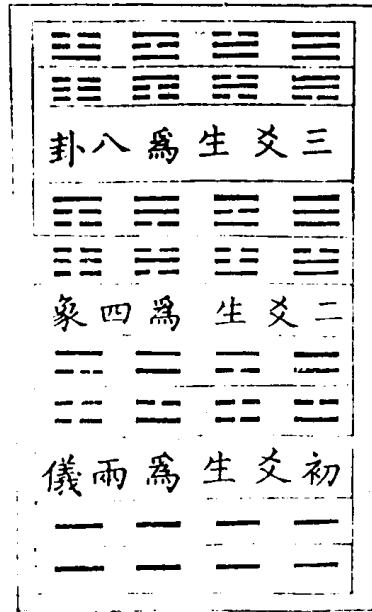 三爻生爲八卦
二爻生爲四象
初爻生爲兩儀